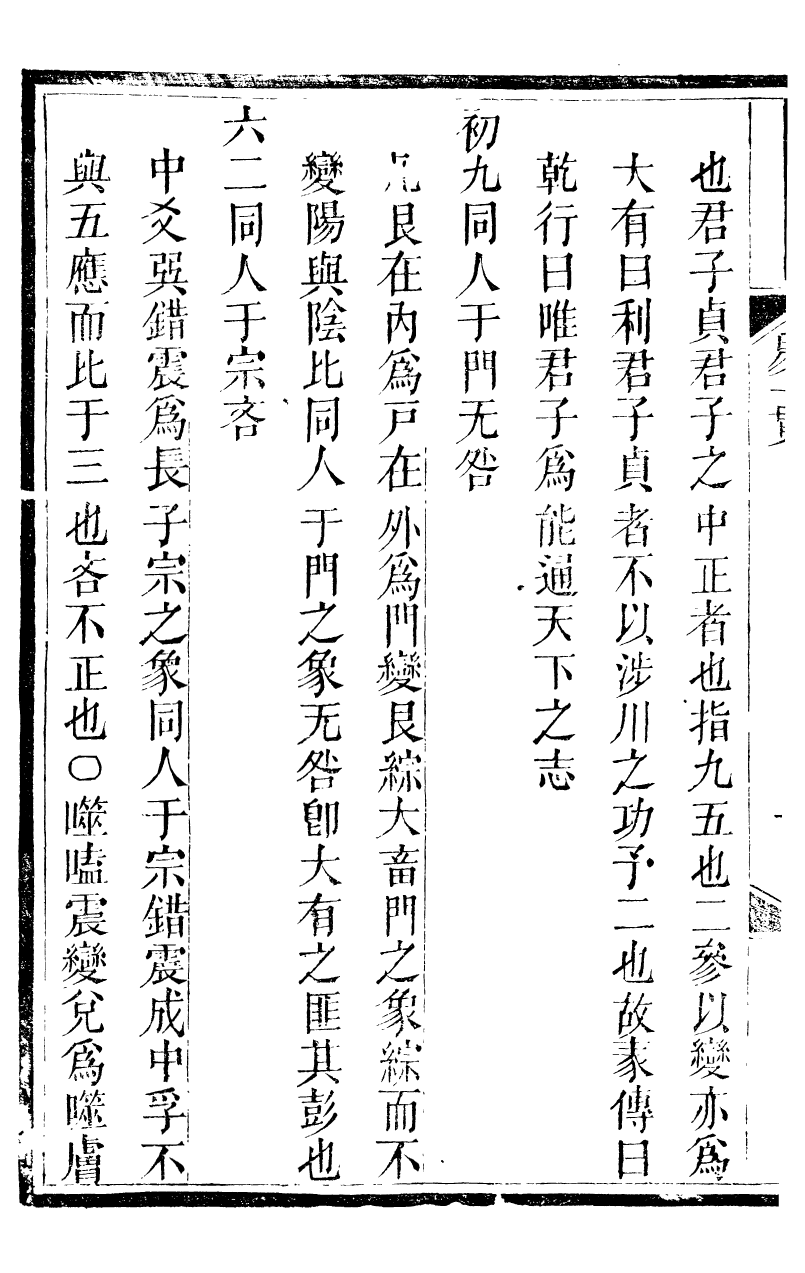 也君子貞君子之中正者也指九五也二參以變亦爲
大有曰利君子貞者不以涉川之功予二也故彖傳曰
乾行曰唯君子爲能通天下之志
初九同人于門无咎
凡艮在內爲戸在外爲門變艮綜大畜門之象綜而不
變陽與陰比同人于門之象无咎卽大有之匪其彭也
六二同人于宗吝
中爻巽錯震爲長子宗之象同人于宗錯震成中孚不
與五應而比于三也吝不正也○噬嗑震變兌爲噬膚